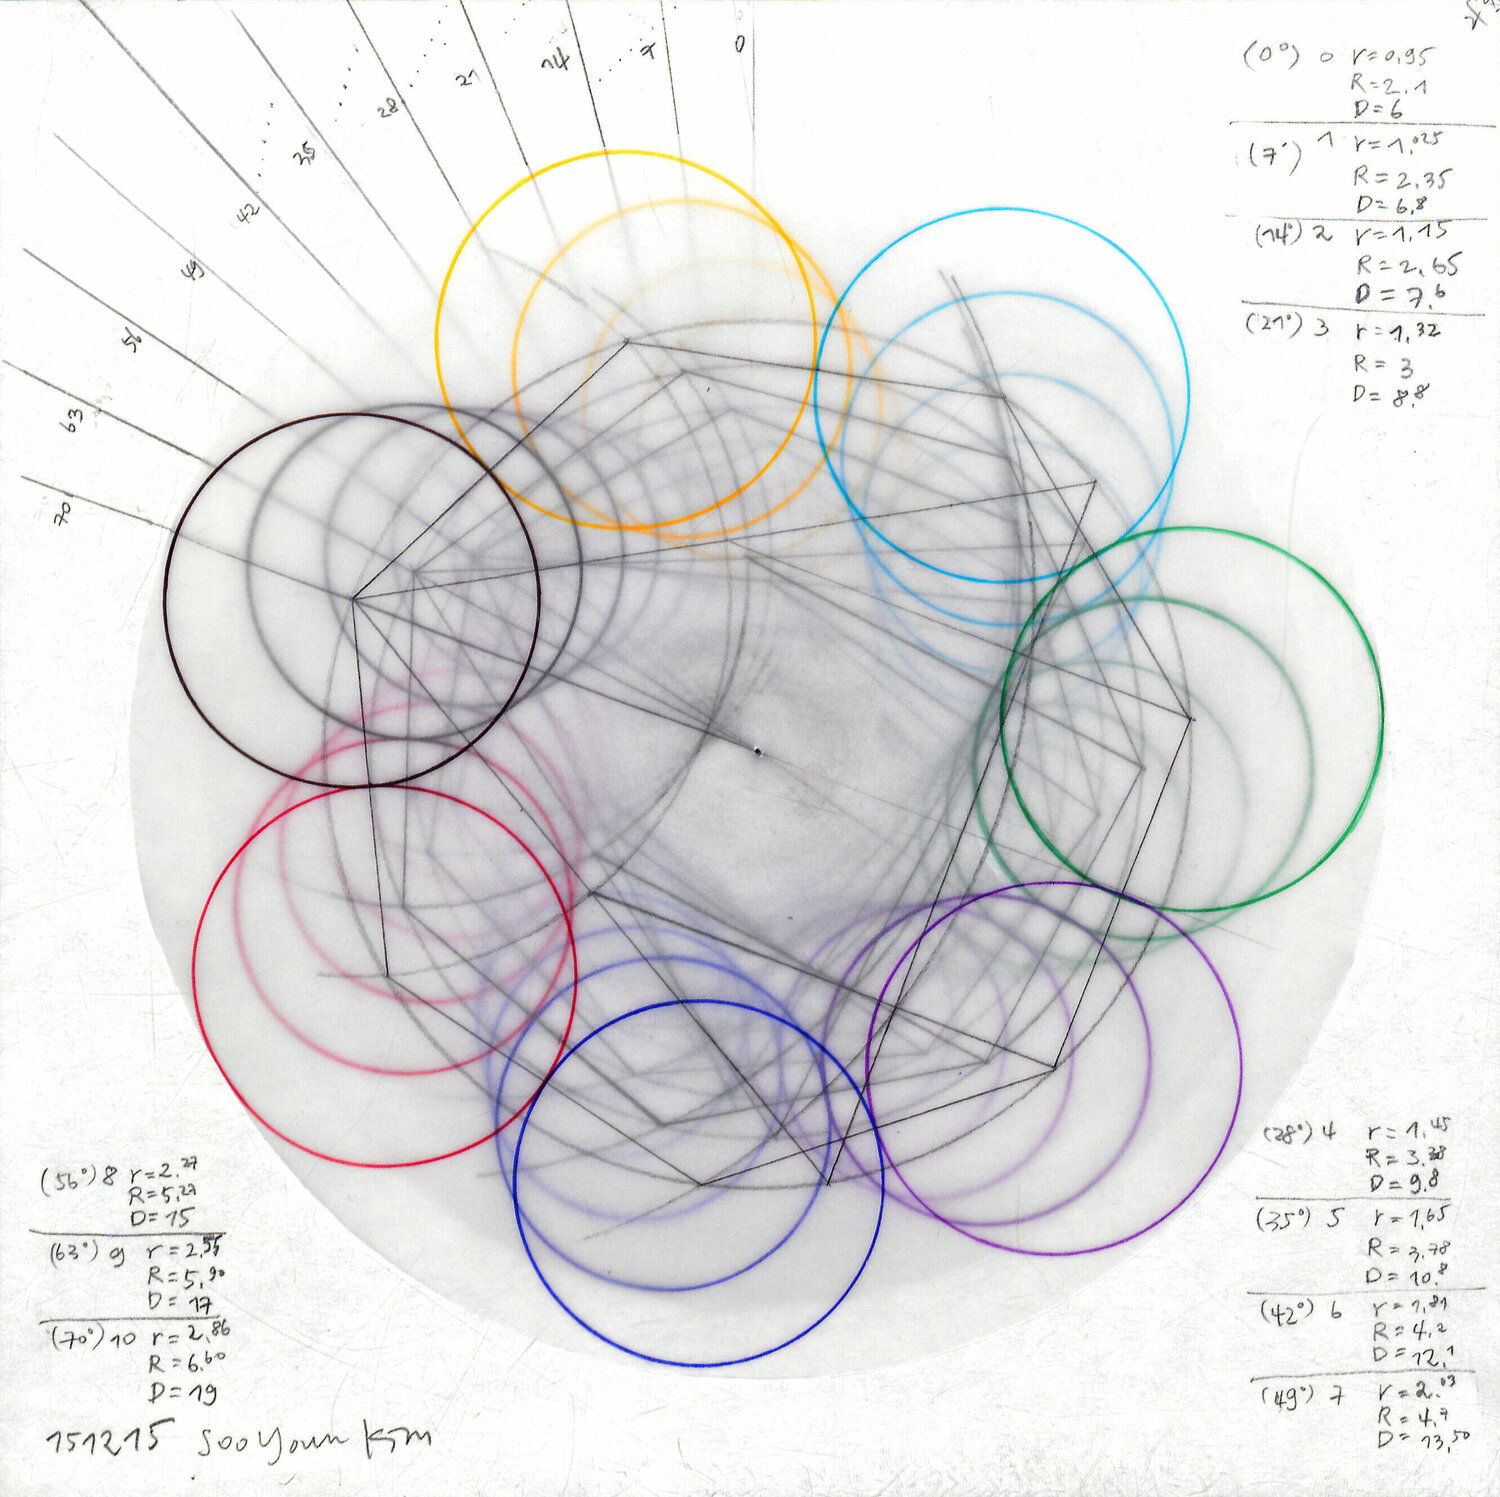 0
7
14
21
28
35
42
49
56
63
70
(0°) 0 r=0,95
R=2.1
D=6
(7°) 1 r=1,025
R=2,35
D=6,8
(14°) 2 r=1,15
R=2,65
D=7.6
(21°) 3 r=1,32
R=3
D=8.8
(28°) 4 r=1,45
R=3.38
D=9.8
(35°) 5 r=1,65
R=3,78
D=10.8
(42°) 6 r=1,81
R=4,2
D=12,1
(49°) 7 r=2.03
R=4,7
D=13,50
(56°) 8 r=2.27
R=5,27
D=15
(63°) 9 r=2,55
R=5,90
D=17
(70°) 10 r=2,86
R=6.60
D=19
151215 SooYoun Kim